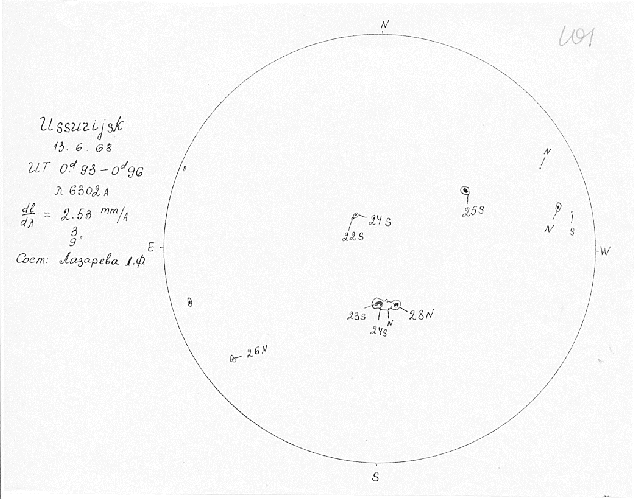 N
101
Ussurijsk
13. 6. 68
UT 0ᵈ 93 – 0ᵈ 96
λ 6302 A
dl/dλ = 2.53 mm/A
3
9°
Сост: Лазарева Л.Ф
E
W
S
N
25S
24S
22S
N
S
23S
N
24S
28N
26N